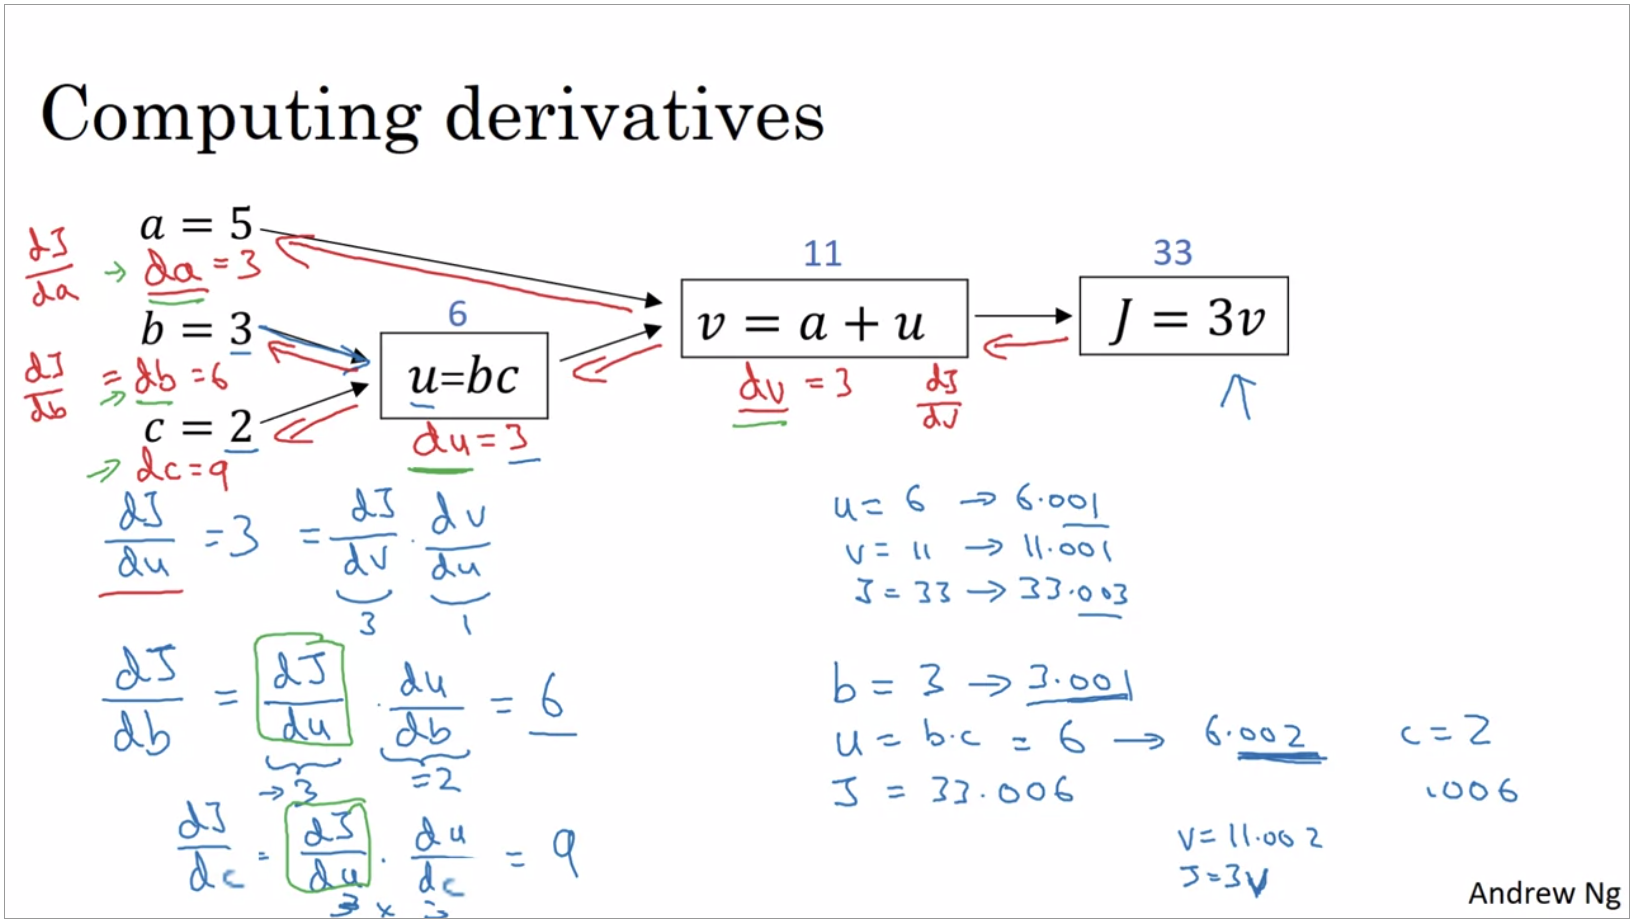 Computing derivatives
a = 5
dJ/da → da = 3
b = 3
dJ/db = db = 6
→
c = 2
→ dc = 9
6
u=bc
du = 3
11
v = a + u
dv = 3 dJ/dv
33
J = 3v
dJ/du = 3 = dJ/dv · dv/du
3 1
dJ/db = dJ/du · du/db = 6
→ 3 = 2
dJ/dc = dJ/du · du/dc = 9
3 × 3
u = 6 → 6.001
v = 11 → 11.001
J = 33 → 33.003
b = 3 → 3.001
u = b·c = 6 → 6.002 c = 2
J = 33.006 .006
v = 11.002
J = 3v
Andrew Ng